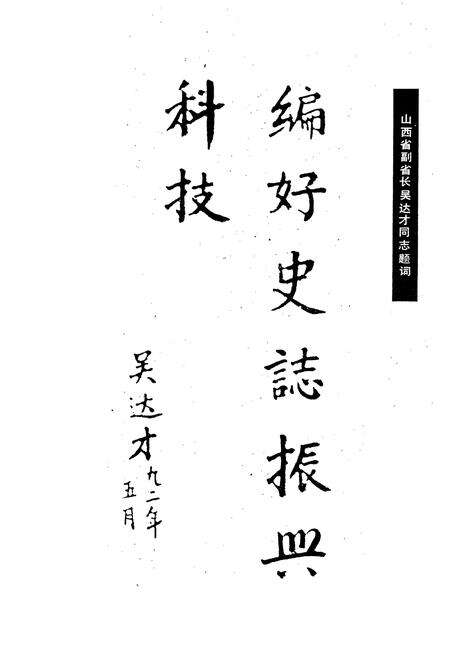 山西省副省长吴达才同志题词
编好史誌振興
科技
吴达才
九二年
五月